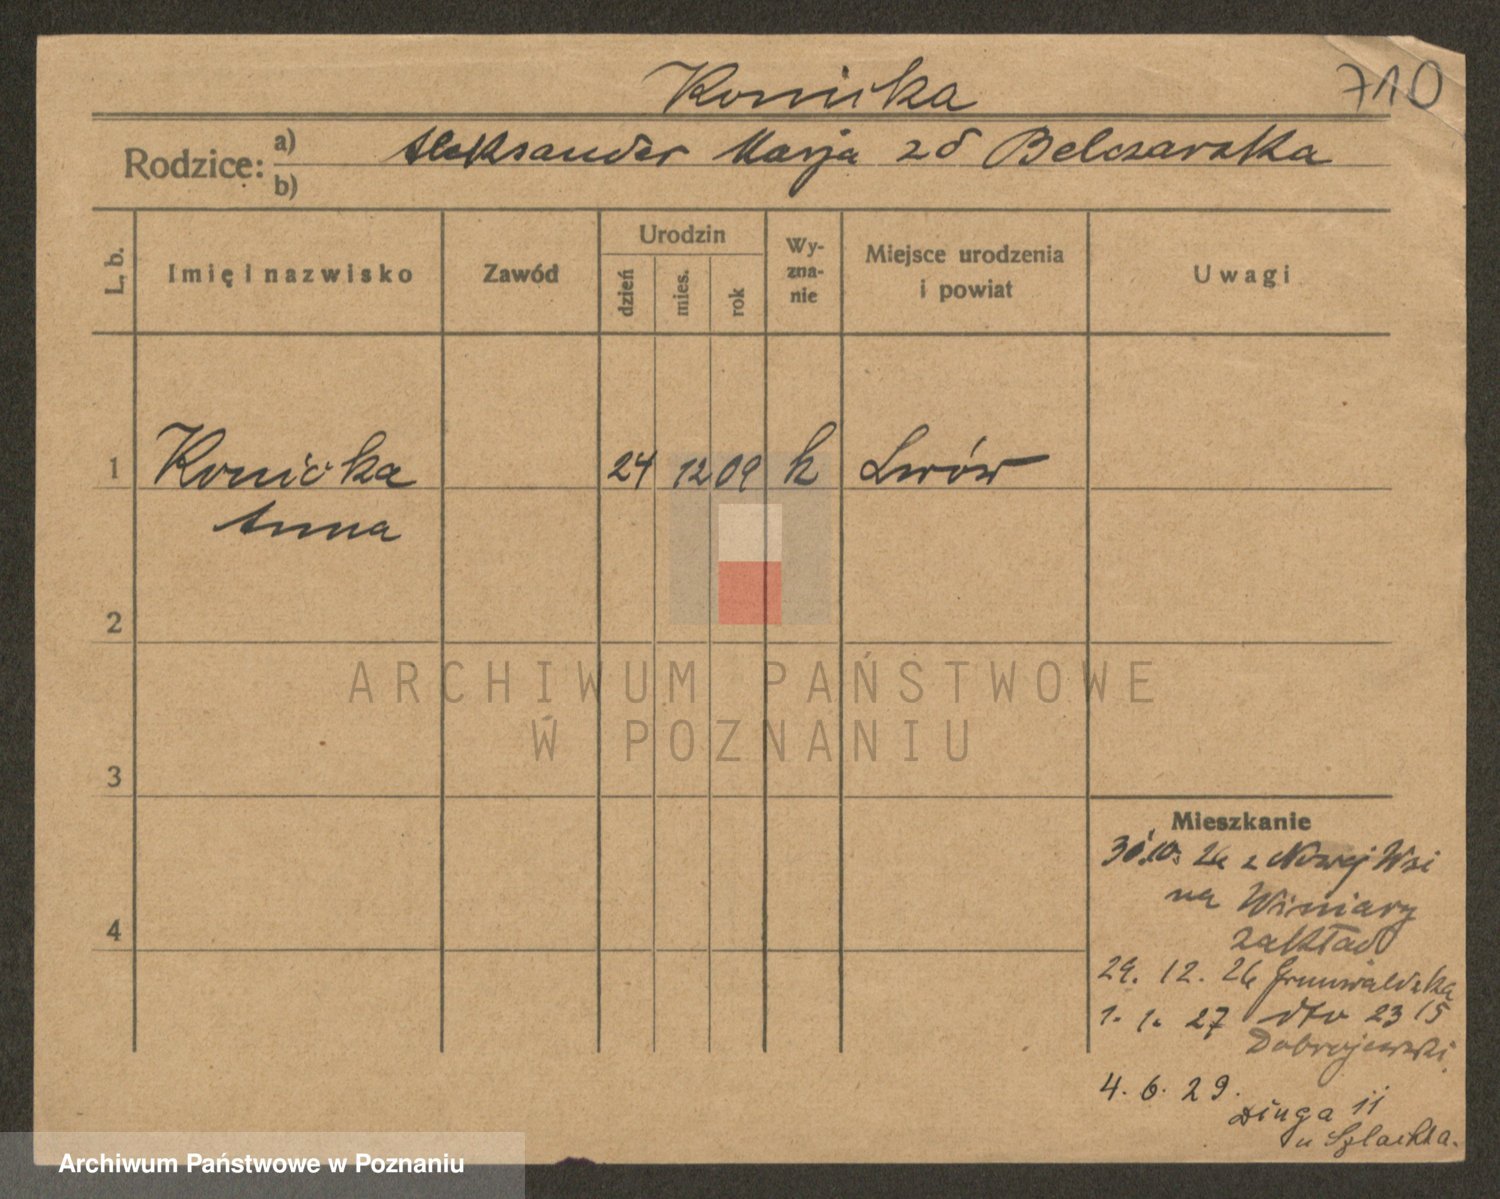 Konicka
710
Rodzice: a) Aleksander Marja zd Belczarska
b)
L. b. Imię i nazwisko Zawód Urodzin dzień mies. rok Wy-zna-nie Miejsce urodzenia i powiat Uwagi
1 Konicka 24 12 09 k Lwów
Anna
2
3
4
Mieszkanie
30.10. 26 z Nowej Wsi
na Winiary
zakład
29. 12. 26 Grunwaldzka
1. 1. 27 dto 23 15
Dobrojewski
4. 6. 29.
Długa 11
u Szlachta.
ARCHIWUM PAŃSTWOWE
W POZNANIU
Archiwum Państwowe w Poznaniu